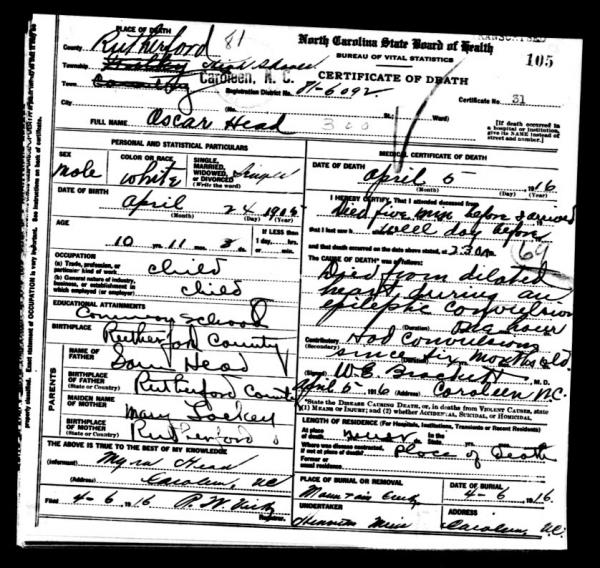 TRANSCRIBED
North Carolina State Board of Health
BUREAU OF VITAL STATISTICS
105
CERTIFICATE OF DEATH
PLACE OF DEATH
County Rutherford 81
Township High Shoals
Town
Caroleen, N. C.
Registration District No. 81-6092
Certificate No. 31
City
(No. St.; Ward)
[If death occurred in a hospital or institution, give its NAME instead of street and number.]
FULL NAME Oscar Head
300
PERSONAL AND STATISTICAL PARTICULARS
SEX
male
COLOR OR RACE
white
SINGLE, MARRIED, WIDOWED, OR DIVORCED
(Write the word)
Single
DATE OF BIRTH
april 24 1905
(Month) (Day) (Year)
AGE
10 yrs. 11 mos. ds.
If LESS than 1 day, hrs. or min.
OCCUPATION
(a) Trade, profession, or particular kind of work
child
(b) General nature of industry, business, or establishment in which employed (or employer)
child
EDUCATIONAL ATTAINMENTS
Common school
BIRTHPLACE
Rutherford County
PARENTS
NAME OF FATHER
Head
BIRTHPLACE OF FATHER
(State or Country)
Rutherford County
MAIDEN NAME OF MOTHER
Mary
BIRTHPLACE OF MOTHER
(State or Country)
Rutherford
THE ABOVE IS TRUE TO THE BEST OF MY KNOWLEDGE
(Informant) Myra Head
(Address) Caroleen, NC
Filed 4-6 1916
Registrar.
MEDICAL CERTIFICATE OF DEATH
DATE OF DEATH
april 5 1916
(Month) (Day) (Year)
I HEREBY CERTIFY, That I attended deceased from
Died five min before I arrived
that I last saw h well day before
and that death occurred on the date above stated, at 2:30 am
The CAUSE OF DEATH* was as follows:
64
Died from dilated
heart during an
epileptic convulsion
(Duration) hour
Contributory Had convulsions
(Secondary)
since six months old
(Signed) W.C. M. D.
april 5 1916 (Address) Caroleen N.C.
*State the DISEASE CAUSING DEATH, or, in deaths from VIOLENT CAUSES, state (1) MEANS OF INJURY; and (2) whether ACCIDENTAL, SUICIDAL, or HOMICIDAL.
LENGTH OF RESIDENCE (For Hospitals, Institutions, Transients or Recent Residents)
At place of death In the
Where was disease contracted, if not at place of death?
Place of death
Former or usual residence
PLACE OF BURIAL OR REMOVAL
DATE OF BURIAL
4-6-1916
UNDERTAKER
ADDRESS
Caroleen, N.C.